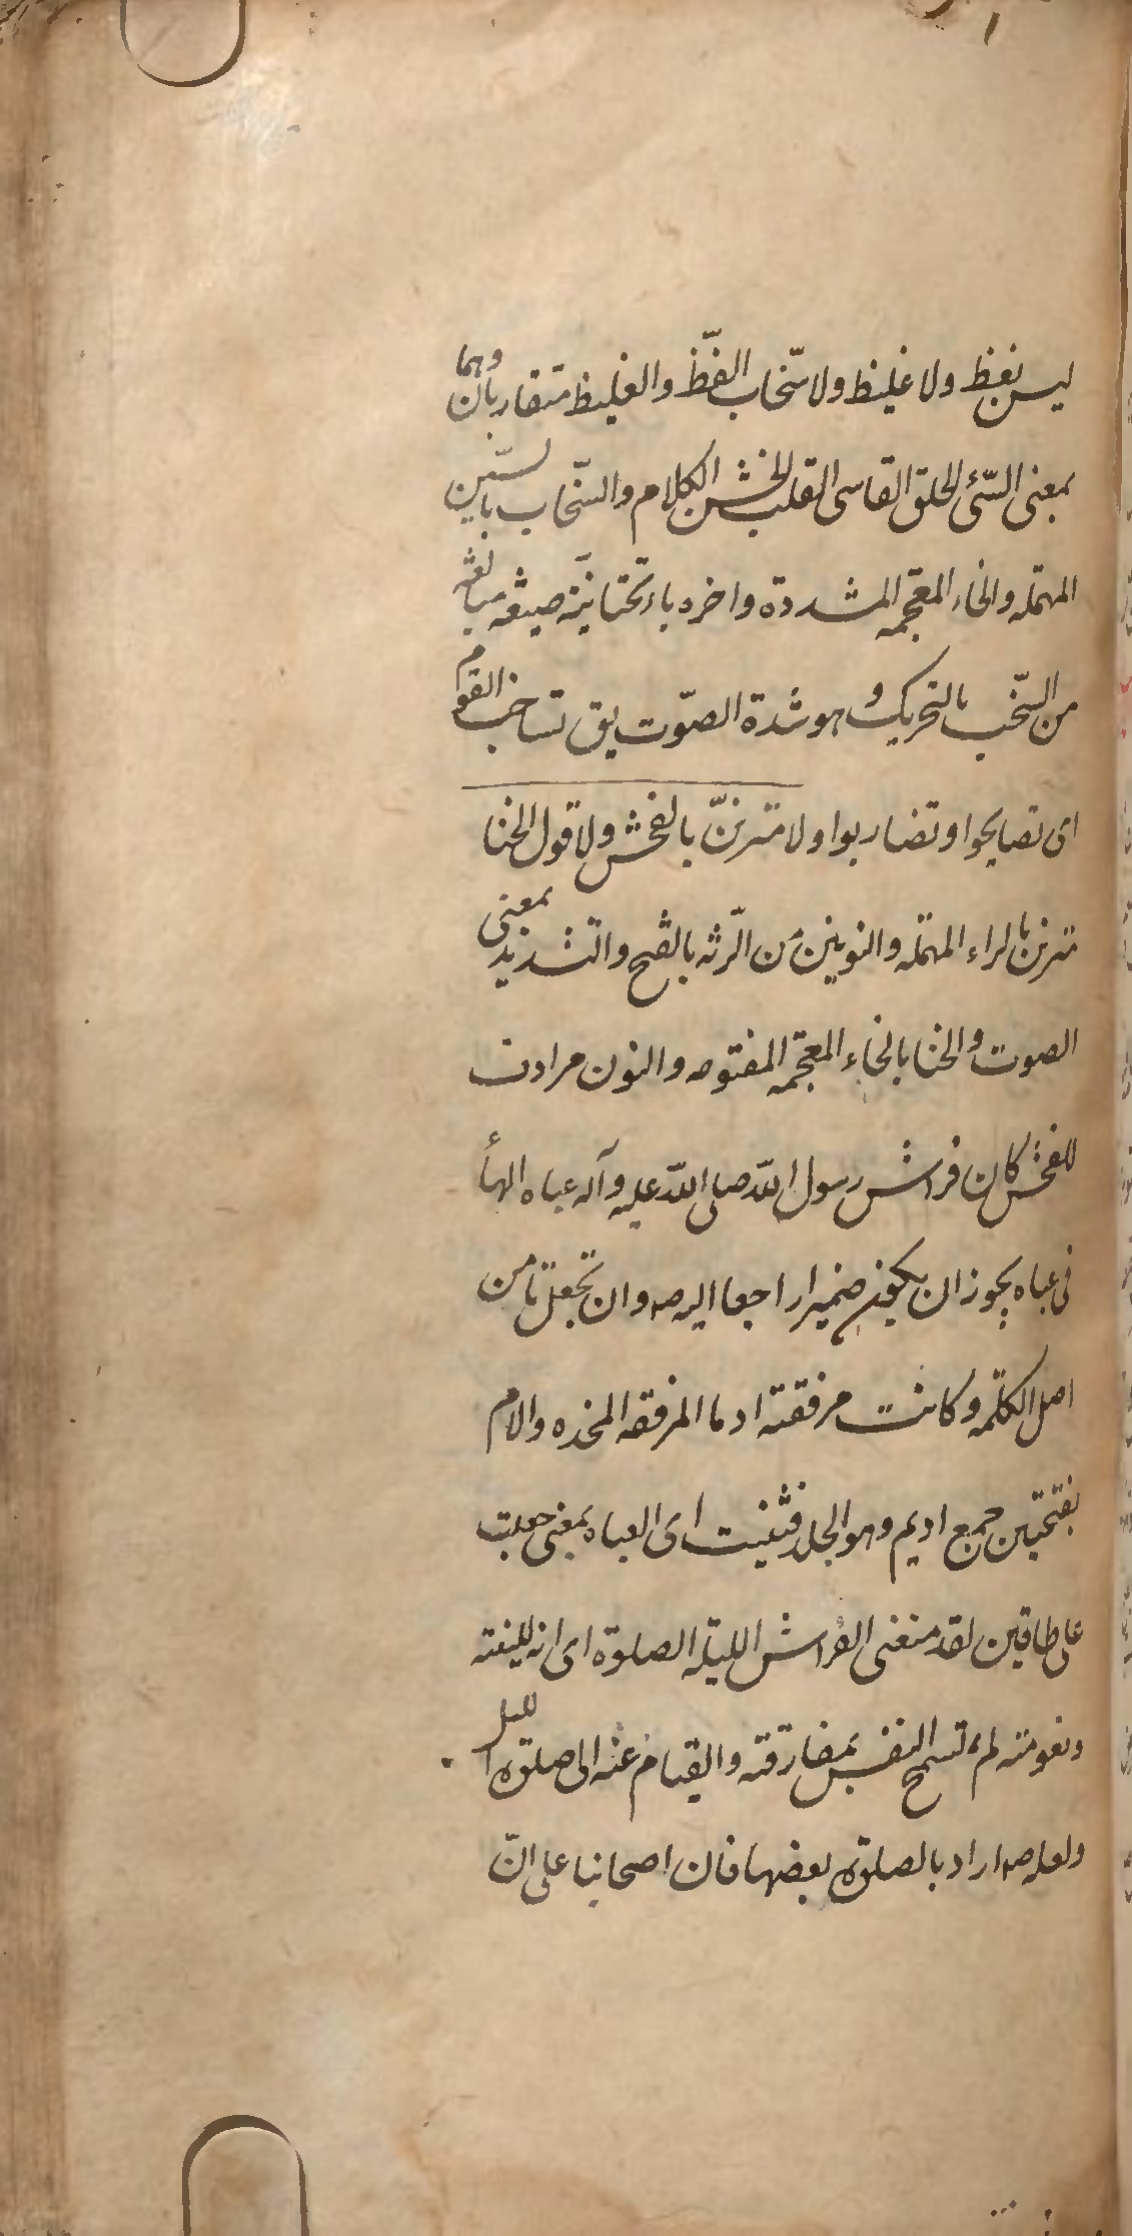 ليس بفظ ولا غليظ ولا سّخاب الفظّ والغليظ متقاربان وهما
بمعنى السّئ الخلق القاسى القلب الخشن الكلام والسّخاب بالسّين
المهملة والخاء المعجمة المشددة واخره باء تحتانيّة صيغة مبالغة
من السّخب بالتحريك وهو شدة الصّوت يق تساخب القوم
اى تصايحوا وتضاربوا ولا مترنّ بالفحش ولا قول الخنا
مترن بالراء المهملة والنونين من الرّنه بالفتح والتشديد بمعنى
الصوت والخنا بالخاء المعجمة المفتوحه والنون مرادف
للفحش كان فراش رسول اللّه صلى اللّه عليه وآله عباه الهأ
فى عباه يجوز ان يكون ضميرا راجعا اليه صه وان تجعل تا من
اصل الكلمة وكانت مرفقته ادما المرفقه المخده والادم
بفتحتين جمع اديم وهو الجلد فثنيت اى العباه بمعنى جعلت
على طاقين لقد منعنى الفراش الليلة الصلوة اى انه للينته
ونعومته لم تسمح النفس بمفارقته والقيام عنه الى صلوة الليل
ولعله صه اراد بالصلوة بعضها فان اصحابنا على انّ